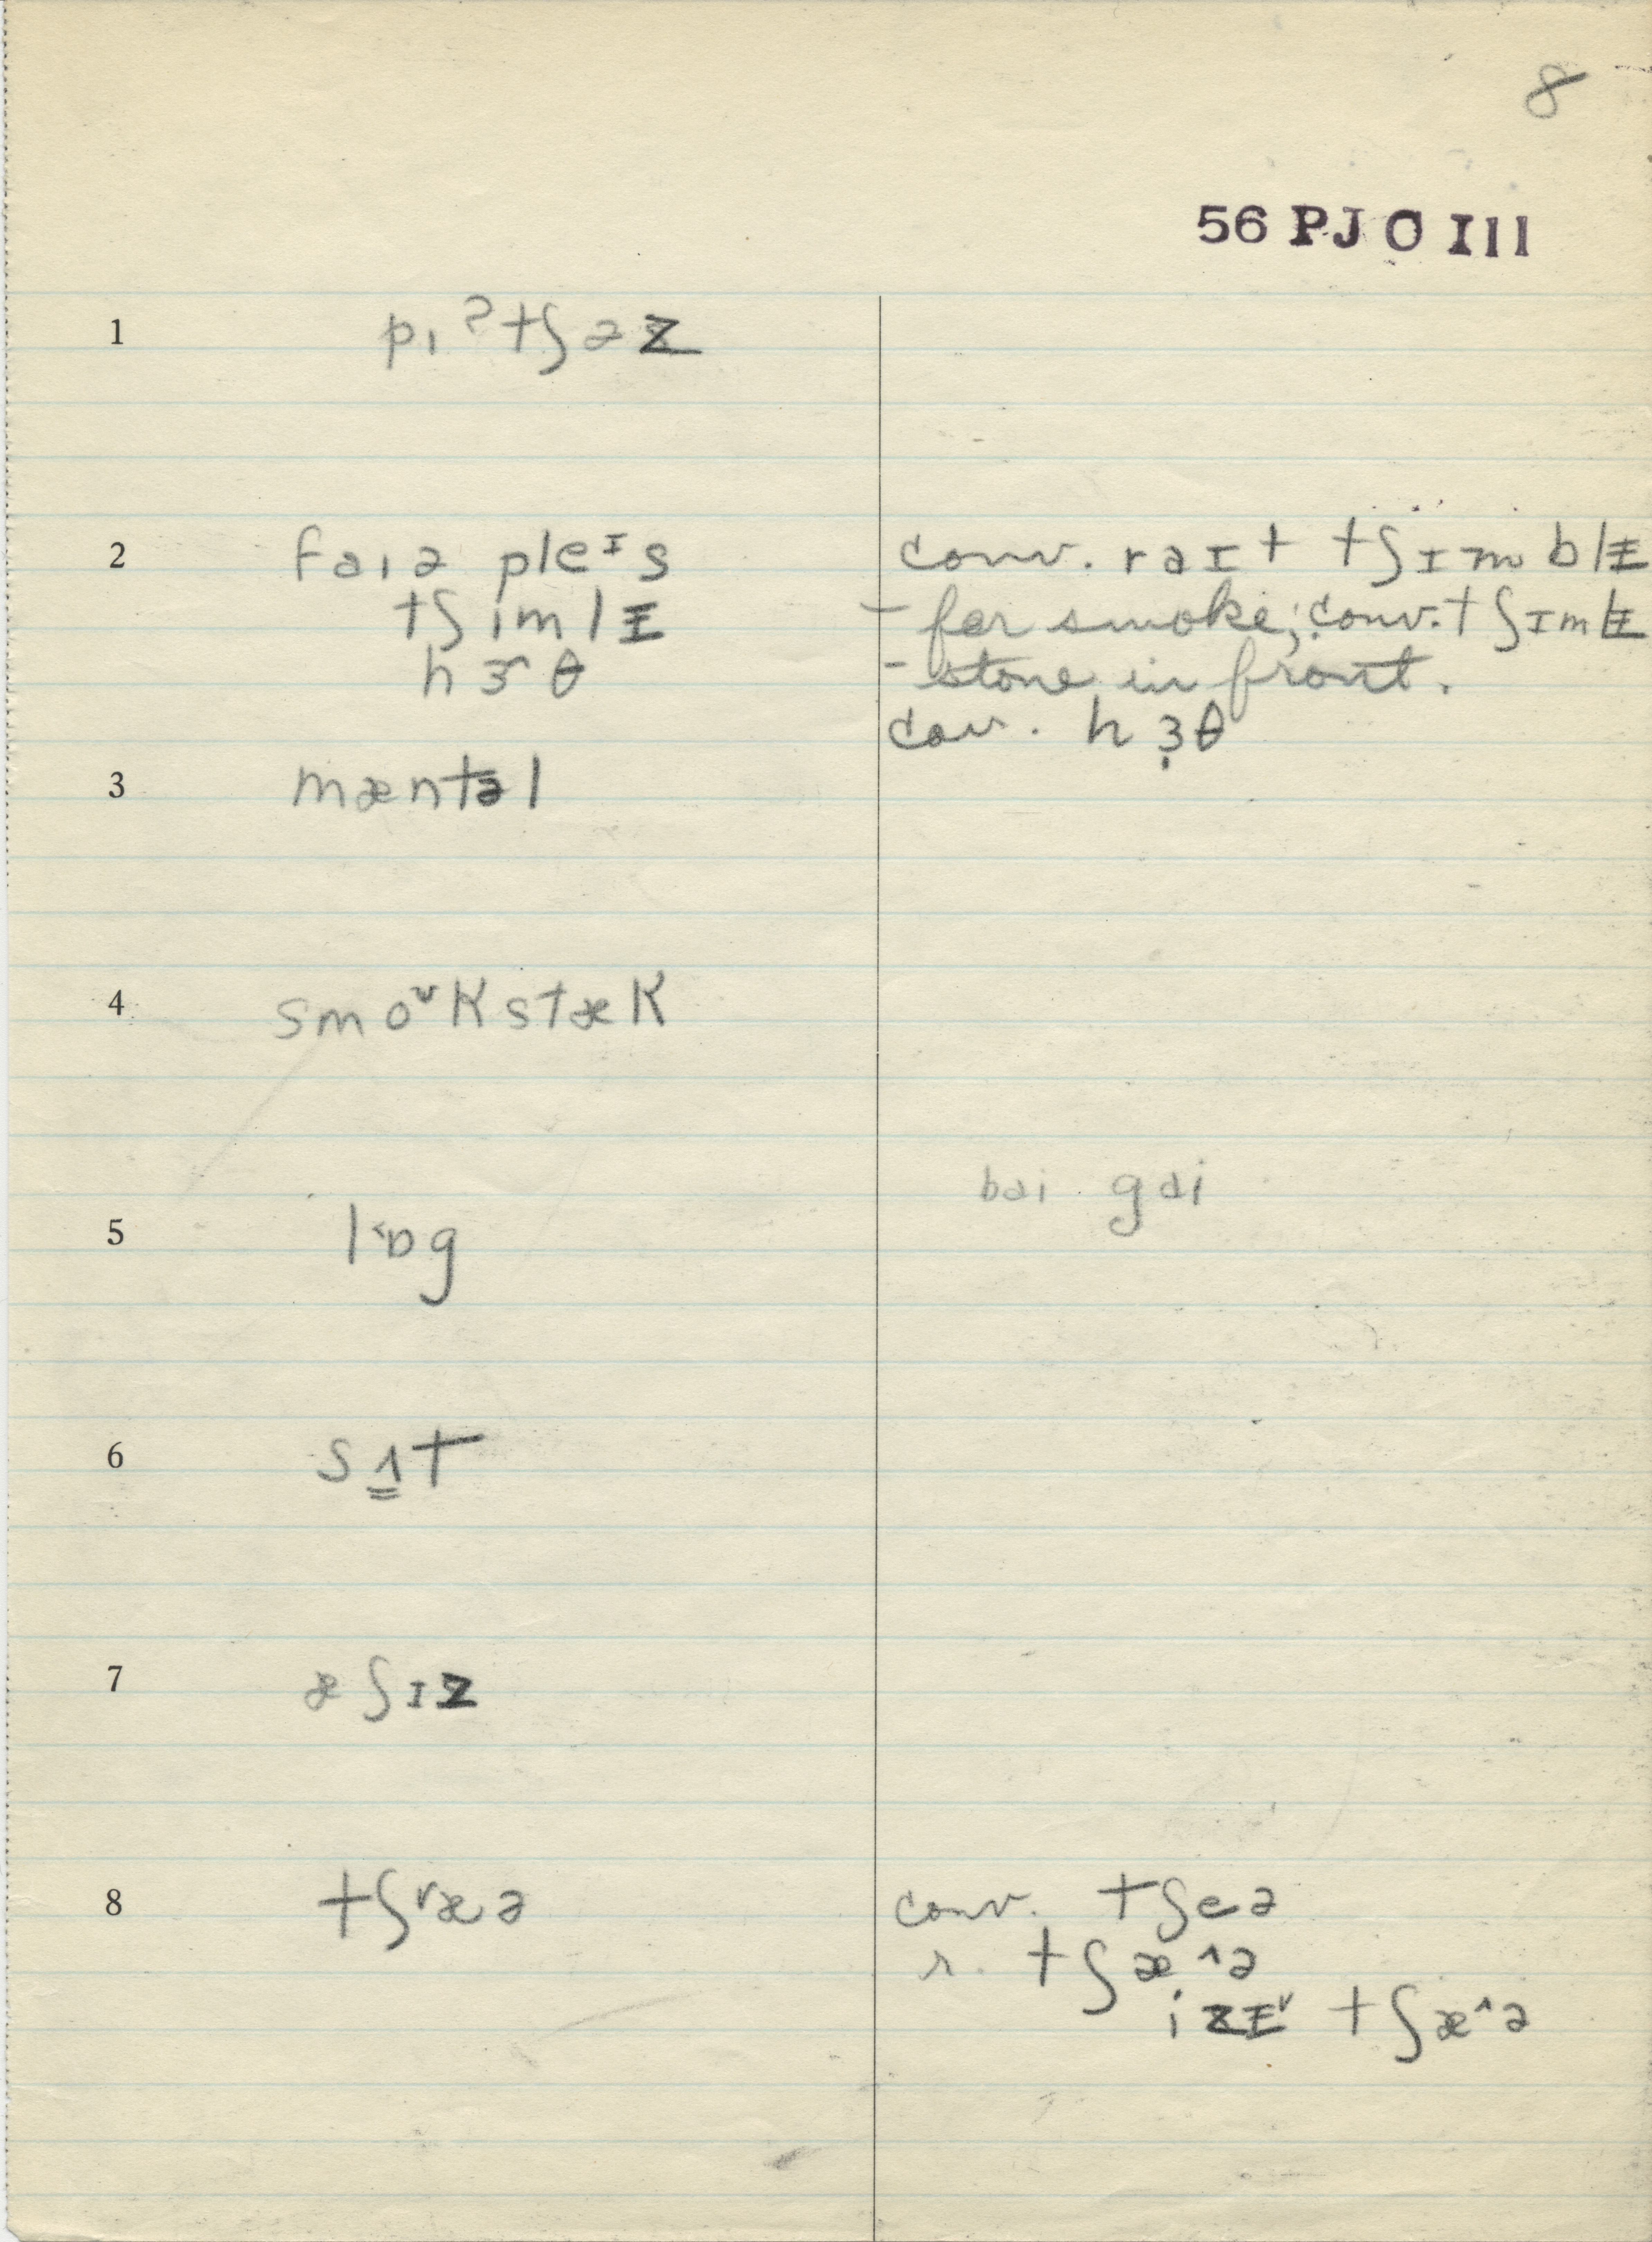 8
56 PJO Ill
1 pɪˀtʃəz
2 faɪə pleᴵs
tʃimlɪ̵
hɝθ
conv. raɪt tʃɪmblɪ̵
- for smoke; conv. tʃɪmlɪ̵
- stone in front.
conv. hɜ̣θ
3 mæntəl
4 smoᵛKstæK
5 l˂ɒg
bai gai
6 sʌ̳t
7 æʃɪz
8 tʃʳæə
conv. tʃeə
r. tʃæ^ə
izɪ̵ᵛ tʃæ^ə